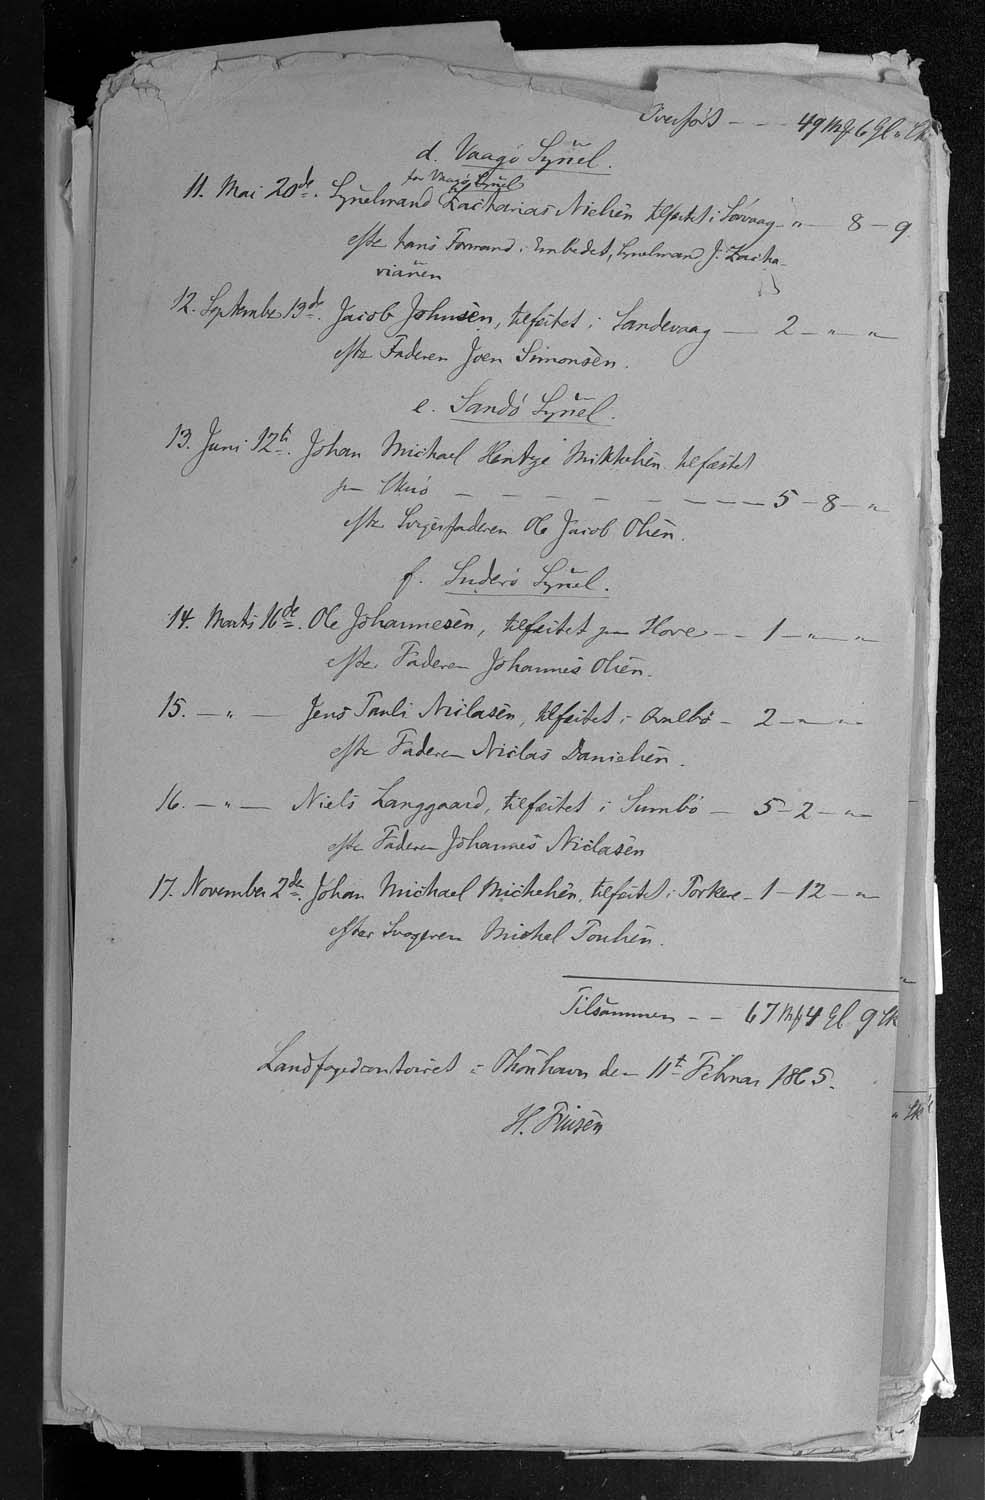 Overført - - - 49 Mk 6 Gl " Sk
d. Vaagø Sysel.
for Vaagø Sysel
11. Mai 20de. Sysselmand Zacharias Nielsen tilfæstet i Sørvaag - " - 8 - 9
efter hans Formand i Embedet, Sysselmand J. Zacha-
riassen
12. September 13de. Jacob Johnsen, tilfæstet i Sandevaag - 2 - " - "
efter Faderen Joen Simonsen.
e. Sandø Sysel.
13. Juni 12te. Johan Michael Hentze Mikkelsen tilfæstet
paa Skuø - - - - - - - - 5 - 8 - "
efter Svigerfaderen Ole Jacob Olsen.
f. Suderø Sysel.
14. Marts 16de. Ole Johannesen, tilfæstet paa Hove - - 1 - " - "
efter Faderen Johannes Olsen.
15. - " - Jens Pauli Niclasen, tilfæstet i - 2 - " - "
efter Faderen Niclas Danielsen.
16. - " - Niels Langgaard, tilfæstet i Sumbø - 5 - 2 - "
efter Faderen Johannes Niclasen
17. November 2den. Johan Michael Michelsen, tilfæstet i Porkere - 1 - 12 - "
efter Svogeren Michel Poulsen.
Tilsammen - - 67 Mk 4 Gl 9 Sk
Landfogedcontoiret i Thorshavn den 11te Februar 1865.
H. Finsen
" Sk